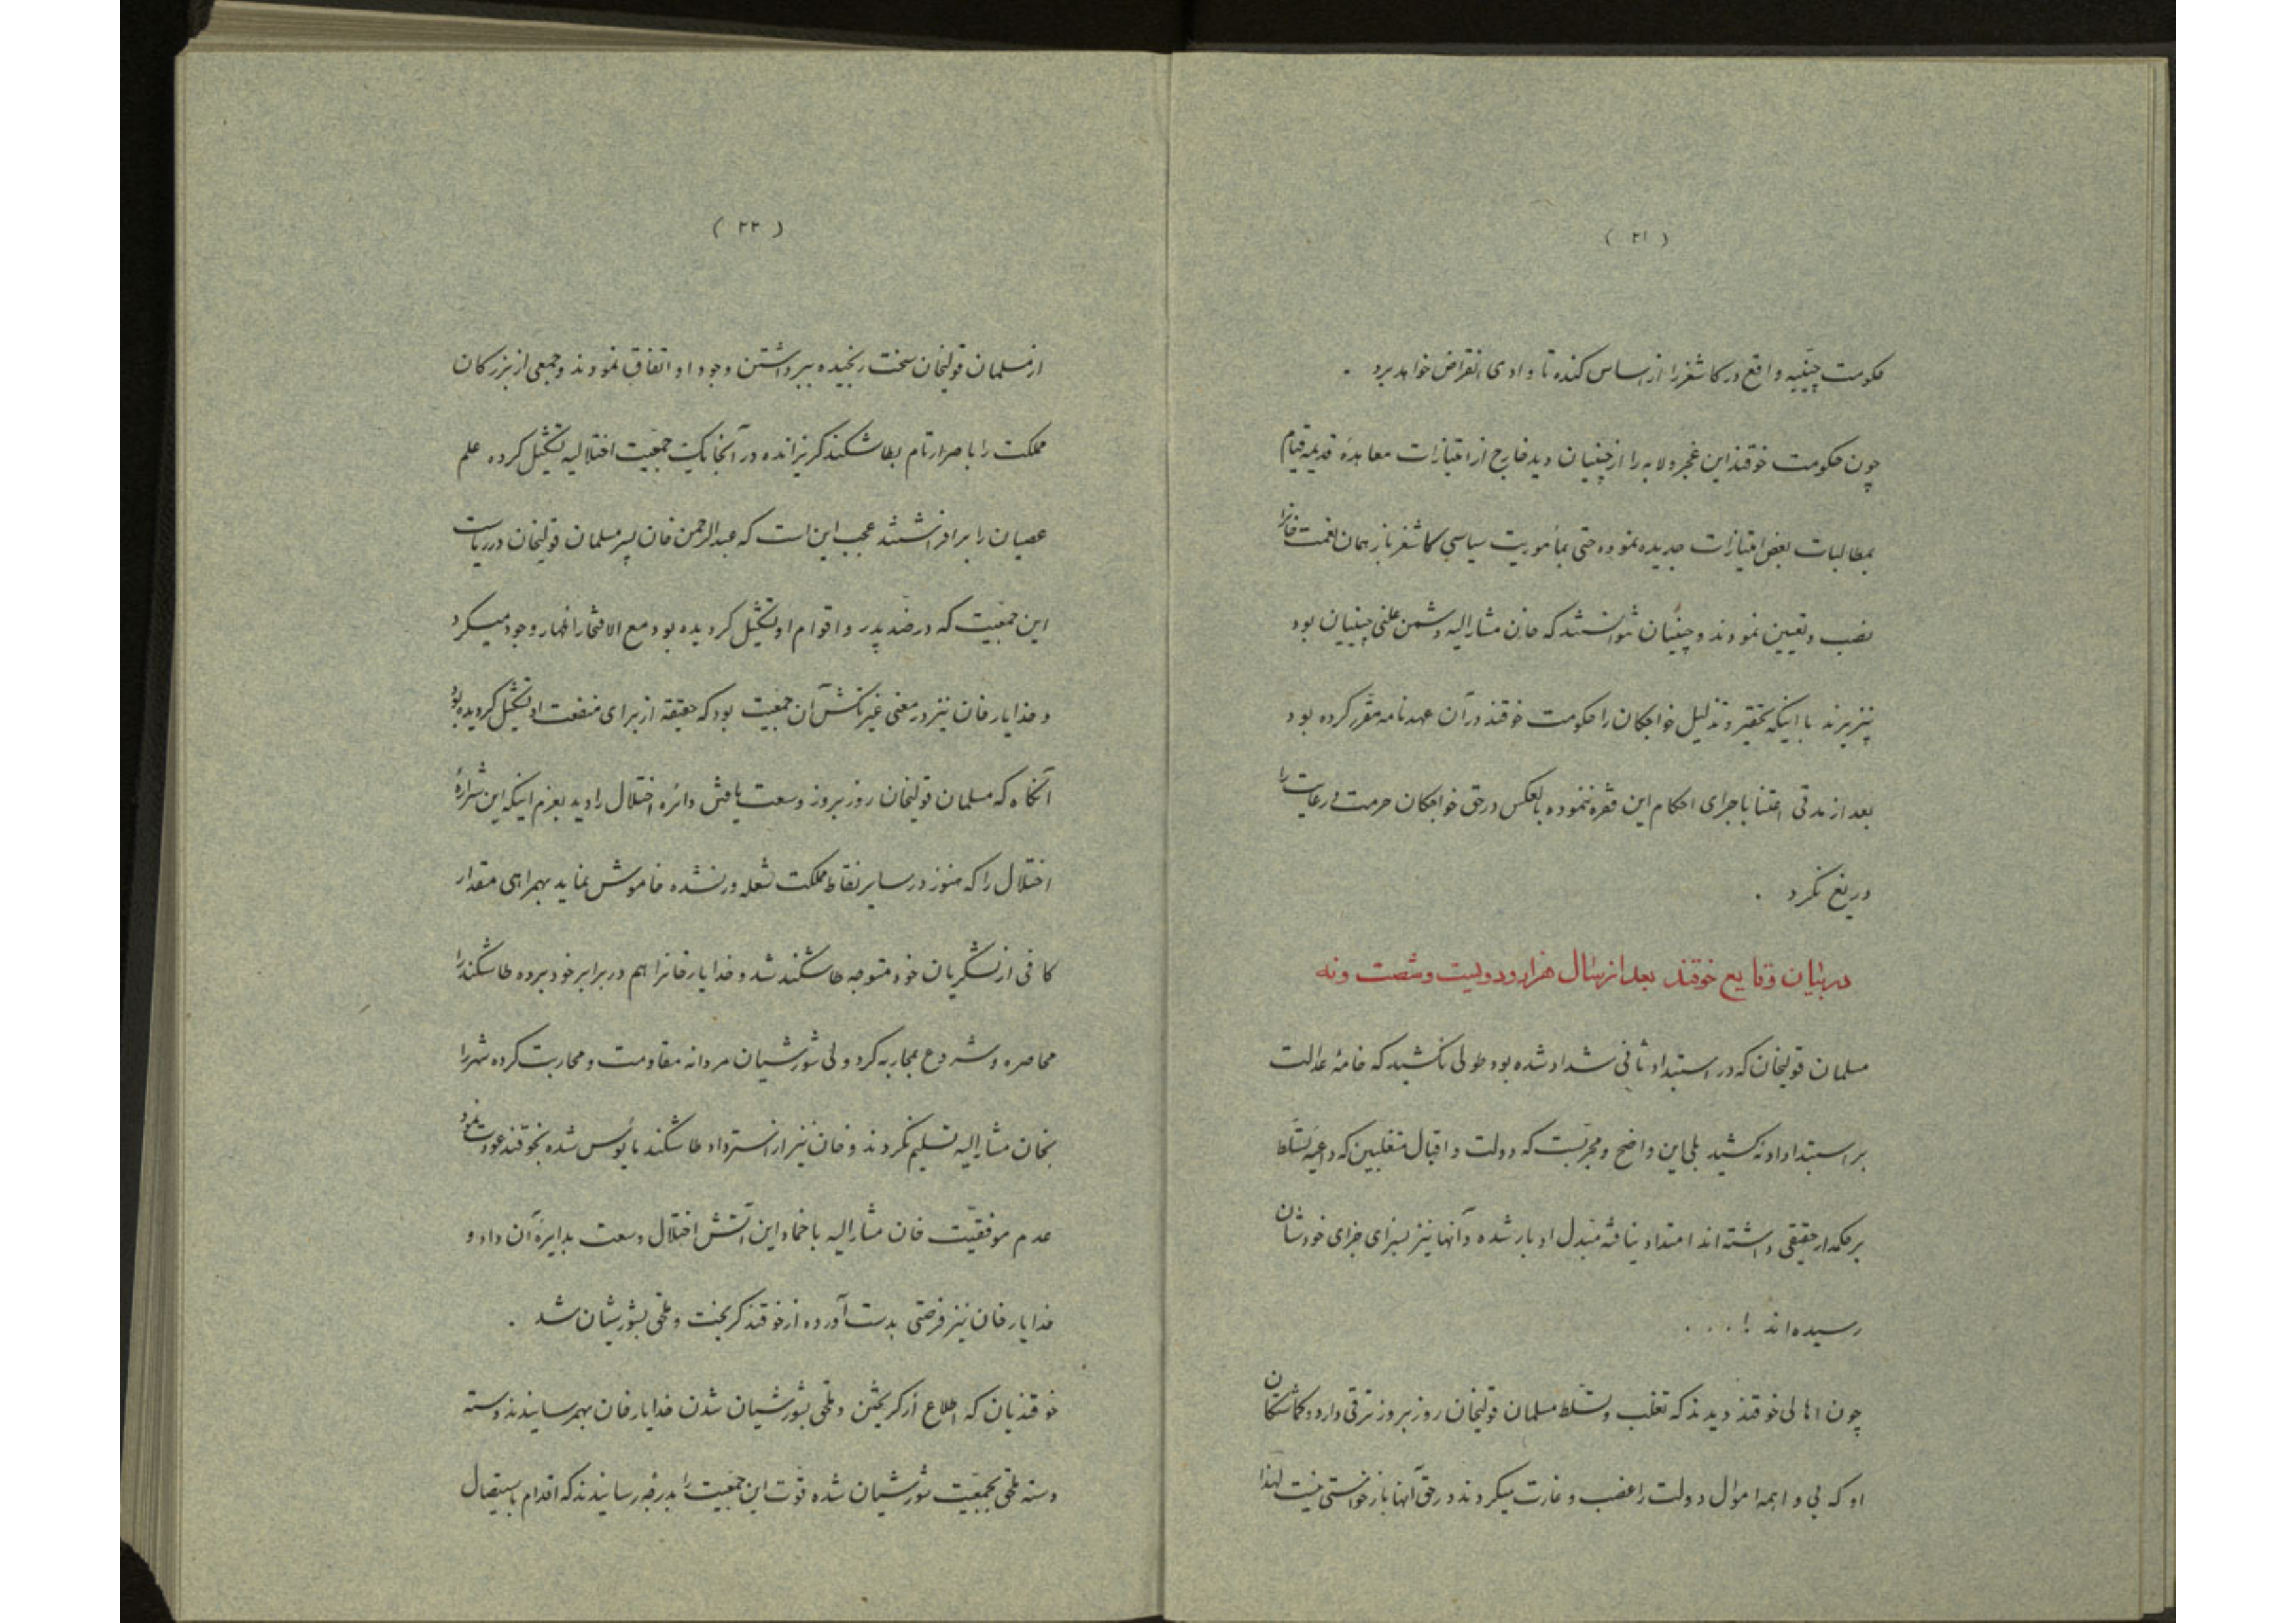 ( ۲۱ )
حکومت چینیه واقع در کاشغر را از اساس کنده تا وادی انقراض خواهد برد .
چون حکومت خوقند این عجز و لابه را از چینیان دید خارج از امتیازات معاهدهٔ قدیمه قیام
بمطالبات بعض امتیازات جدیده نموده حتی بمأموریت سیاسی کاشغر باز همان نعمت خانرا
نصب و تعیین نمودند و چینیان نتوانستند که خان مشارالیه دشمن علنی چینیان بود
نپزیرند با اینکه تحقیر و تذلیل خواجکان را حکومت خوقند در آن عهدنامه مقرر کرده بود
بعد از مدتی اعتنا باجرای احکام این فقره ننموده بالعکس در حق خواجکان حرمت و رعایت را
دریغ نکرد .
در بیان وقایع خوقند بعد از سال هزار و دویست و شصت و نه
مسلمان قولیخان که در استبداد ثانی شداد شده بود طولی نکشید که خامهٔ عدالت
بر استبداد او نه کشید بلی این واضح و مجربست که دولت و اقبال متغلبین که داعیهٔ تسلط
بر حکمدار حقیقی داشته اند امتداد نیافته مبدل ادبار شده و آنها نیز بسزای جزای خودشان
رسیده اند ! . . .
چون اهالی خوقند دیدند که تغلب و تسلط مسلمان قولیخان روز بروز ترقی دارد و کماشتکان
او که بی واهمه اموال دولت را غصب و غارت میکردند در حق آنها بازخواستی نیست لهذا
( ۲۲ )
از مسلمان قولیخان سخت رنجیده ببرداشتن وجود او اتفاق نمودند و جمعی از بزرکان
مملکت را باصرار تام بطاشکند کریزانده در آنجا یک جمعیت اختلالیه تشکیل کرده علم
عصیان را برافراشتند عجب این است که عبدالرحمن خان پسر مسلمان قولیخان در ریاست
این جمعیت که در ضد پدر و اقوام او تشکیل کردیده بود مع الافتخار اظهار وجود میکرد
و خدایار خان نیز در معنی غیر ناکش آن جمعیت بود که حقیقة از برای منفعت او تشکیل کردیده بود
آنکاه که مسلمان قولیخان روز بروز وسعت یافتن دائره اختلال را دید بعزم اینکه این شرارهٔ
اختلال را که هنوز در سایر نقاط مملکت شعله ور نشده خاموش نماید بهمراهی مقدار
کافی از لشکریان خود متوجه طاشکند شد و خدایار خانرا هم در برابر خود برده طاشکند را
محاصره و شروع بمحاربه کرد ولی شورشیان مردانه مقاومت و محاربت کرده شهر را
بخان مشارالیه تسلیم نکردند و خان نیز از استرداد طاشکند مأیوس شده بخوقند عودت نمود
عدم موفقیت خان مشارالیه باخماد این آتش اختلال وسعت بدایرهٔ آن داد و
خدایار خان نیز فرصتی بدست آورده از خوقند کریخت و ملحق بشورشیان شد .
خوقندیان که اطلاع از کریختن و ملحق بشورشیان شدن خدایار خان بهمرسانیدند دسته
دسته ملحق بجمعیت شورشیان شده قوت این جمعیت را بدرجه رسانیدند که اقدام باستیصال